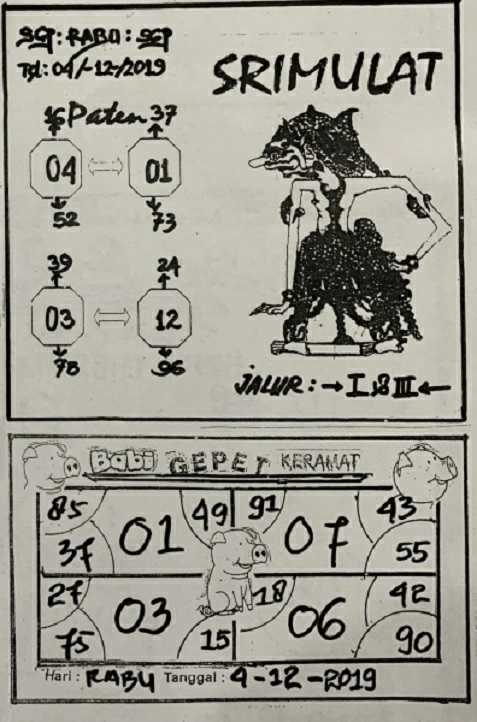 SGP: RABU: SGP
Tgl: 04/-12-/2019
SRIMULAT
16 Paten 37
04 01
52 73
39 24
03 12
78 96
JALUR: → I & III ←
Babi GEPET KERAMAT
85 49 91 43
37 01 07 55
27 03 18 06 42
75 15 90
Hari : RABU Tanggal : 4-12-2019